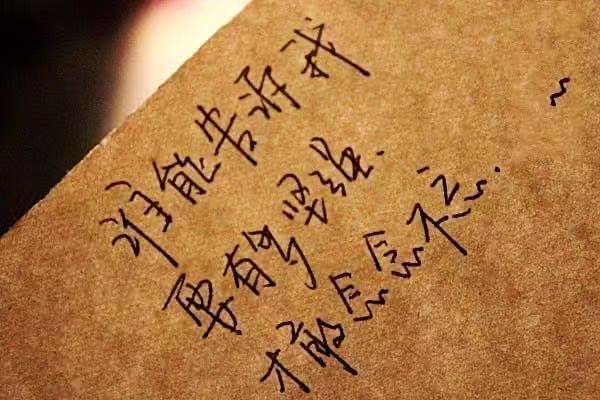 谁能告诉我
要有多坚强.
才敢念念不忘.
~